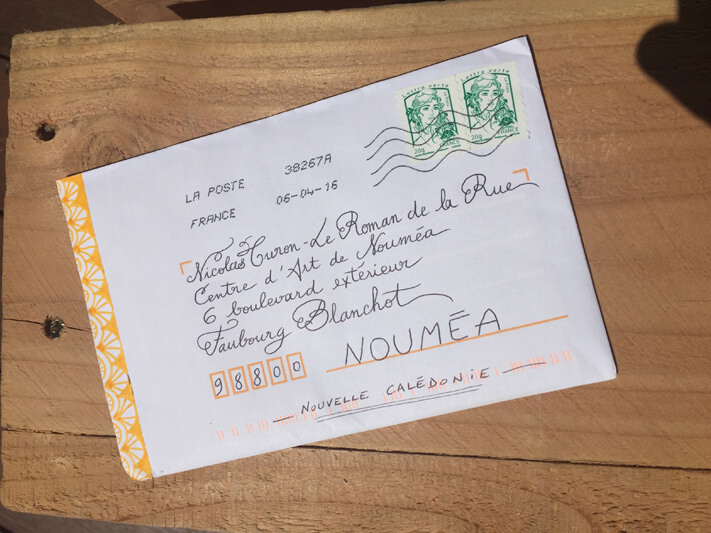 Lettre verte Lettre verte
20g FRANCE 20g FRANCE
LA POSTE 38267A
FRANCE 06-04-16
Nicolas Turon-Le Roman de la Rue
Centre d'Art de Nouméa
6 boulevard extérieur
Faubourg Blanchot
98800 NOUMÉA
NOUVELLE CALÉDONIE